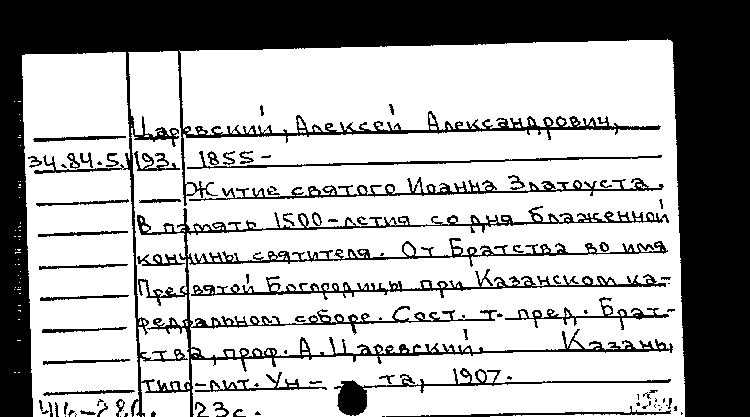 Царевский, Алексей Александрович,
34.84.5.193. 1855-
Житие святого Иоанна Златоуста.
В память 1500-летия со дня блаженной
кончины святителя. От Братства во имя
Пресвятой Богородицы при Казанском ка-
федральном соборе. Сост. т. пред. Брат-
ства, проф. А. Царевский. Казань,
типо-лит. Ун-та, 1907.
23с.